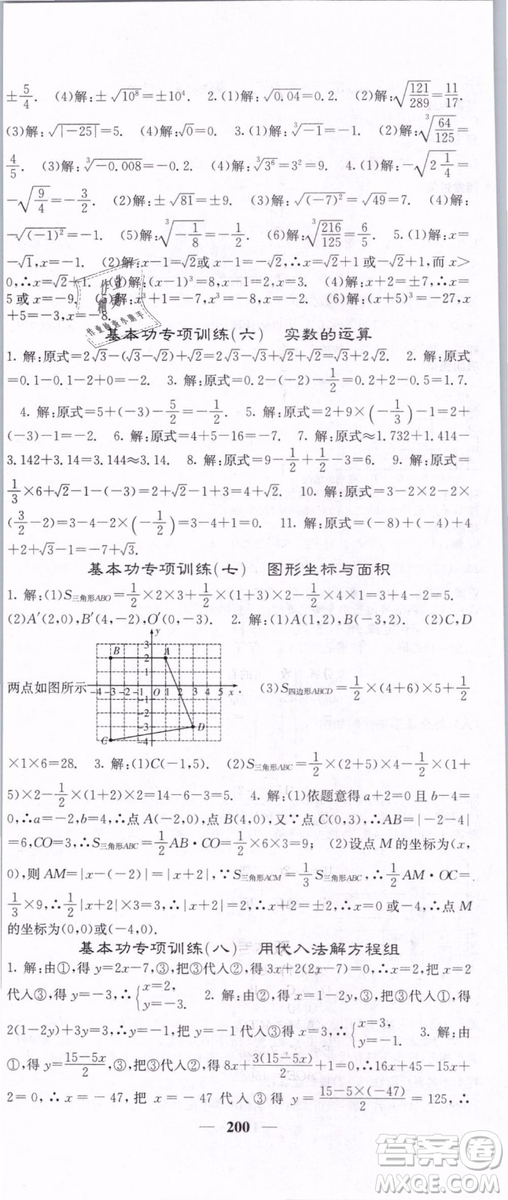 ±5/4. (4)解:±√10⁸=±10⁴. 2.(1)解:√0.04=0.2. (2)解:√(121/289)=11/17.
(3)解:√|-25|=5. (4)解:√0=0. 3.(1)解:³√-1=-1. (2)解:³√(64/125)=
4/5. (3)解:³√-0.008=-0.2. (4)解:³√10⁶=10². 4.(1)解:-√(2 1/4)=
-√(9/4)=-3/2. (2)解:±√81=±9. (3)解:√(-7)²=√49=7. (4)解:
-√(-1)²=-1. (5)解:³√(-1/8)=-1/2. (6)解:³√(216/125)=6/5. 5.(1)解:x=
-√1,x=-1. (2)解:x-1=√2或x-1=-√2,∴x=√2+1或x=-√2+1,而x>
0,∴x=√2+1. (3)解:(x-1)³=8,x-1=2,∴x=3. (4)解:x+2=±7,∴x=5或
x=-9. (5)解:x³+1=-7,x³=-8,∴x=-2. (6)解:(x+5)³=-27,x
+5=-3,∴x=-8.
基本功专项训练(六) 实数的运算
1. 解:原式=2√3-(√3-√2)+√2=2√3-√3+√2+√2=√3+2√2. 2. 解:原式=
0.1-0.2-1+2=0.9. 3. 解:原式=0.5-2+3+0.2=1.7.
4. 解:原式=5+(-3)-5/2=-1/2. 5. 解:原式=2+9×(-1/3)-1=2+
(-3)-1=-2. 6. 解:原式=4+5-16=-7. 7. 解:原式≈1.732+1.414-
3.142+3.14=3.144≈3.14. 8. 解:原式=9-1/2+1/2=9. 9. 解:原式=
1/3×6+√2-1-(-3)=2+√2-1+3=4+√2. 10. 解:原式=3-2-2×
(-3/2)=3-2+3=4. 11. 解:原式=(-8)+(-4)+
(-2)+2√7=-14+2√7.
基本功专项训练(七) 图形坐标与面积
1. 解:(1)S三角形ABO=1/2×2×3+1/2×(2+3)×2-1/2×4×1=3+4-2=5.
(2)A′(2,0),B′(4,-2),O′(0,-3). 2. 解:(1)A(1,2),B(-3,2). (2)C,D
两点如图所示. (3)S四边形ABCD=1/2×(4+6)×5+1/2
y
B
A
C
D
x
×1×6=28. 3. 解:(1)C(-1,5). (2)S三角形ABC=1/2×(2+5)×4-1/2×(1+
5)×2-1/2×(2+2)×1=14-6-2=6.
4. 解:(1)依题意得a+2=0且b-4
=0,∴a=-2,b=4,∴点A(-2,0),点B(4,0). 又∵点C(0,3),∴AB=|-2-4|
=6,CO=3,∴S三角形ABC=1/2AB·CO=1/2×6×3=9. (2)设点M的坐标为(x,
0),则AM=|x-(-2)|=|x+2|. 又∵S三角形ACM=1/3S三角形ABC,∴1/2AM·OC=
1/3×9,∴1/2|x+2|×3=3,∴|x+2|=2,即x+2=±2,解得x=0或-4,∴点M
的坐标为(0,0)或(-4,0).
基本功专项训练(八) 用代入法解方程组
1. 解:由①,得y=2x-7,③,把③代入②,得3x+2(2x-7)=0,∴x=2,把x=2
代入③,得y=-3,∴{x=2, y=-3. 2. 解:由②,得x=-2y+1,③,把③代入①,得
2(1-2y)+3y=3,∴y=-1,把y=-1代入③,得x=3,∴{x=3, y=-1. 3. 解:由
①,得y=(15-5x)/2,③,把③代入②,得8x+3(15-5x)/2+1=0,∴16x+45-15x
+2=0,∴x=-47,把x=-47代入③得y=(15-5×(-47))/2=125,∴
200
答案圈